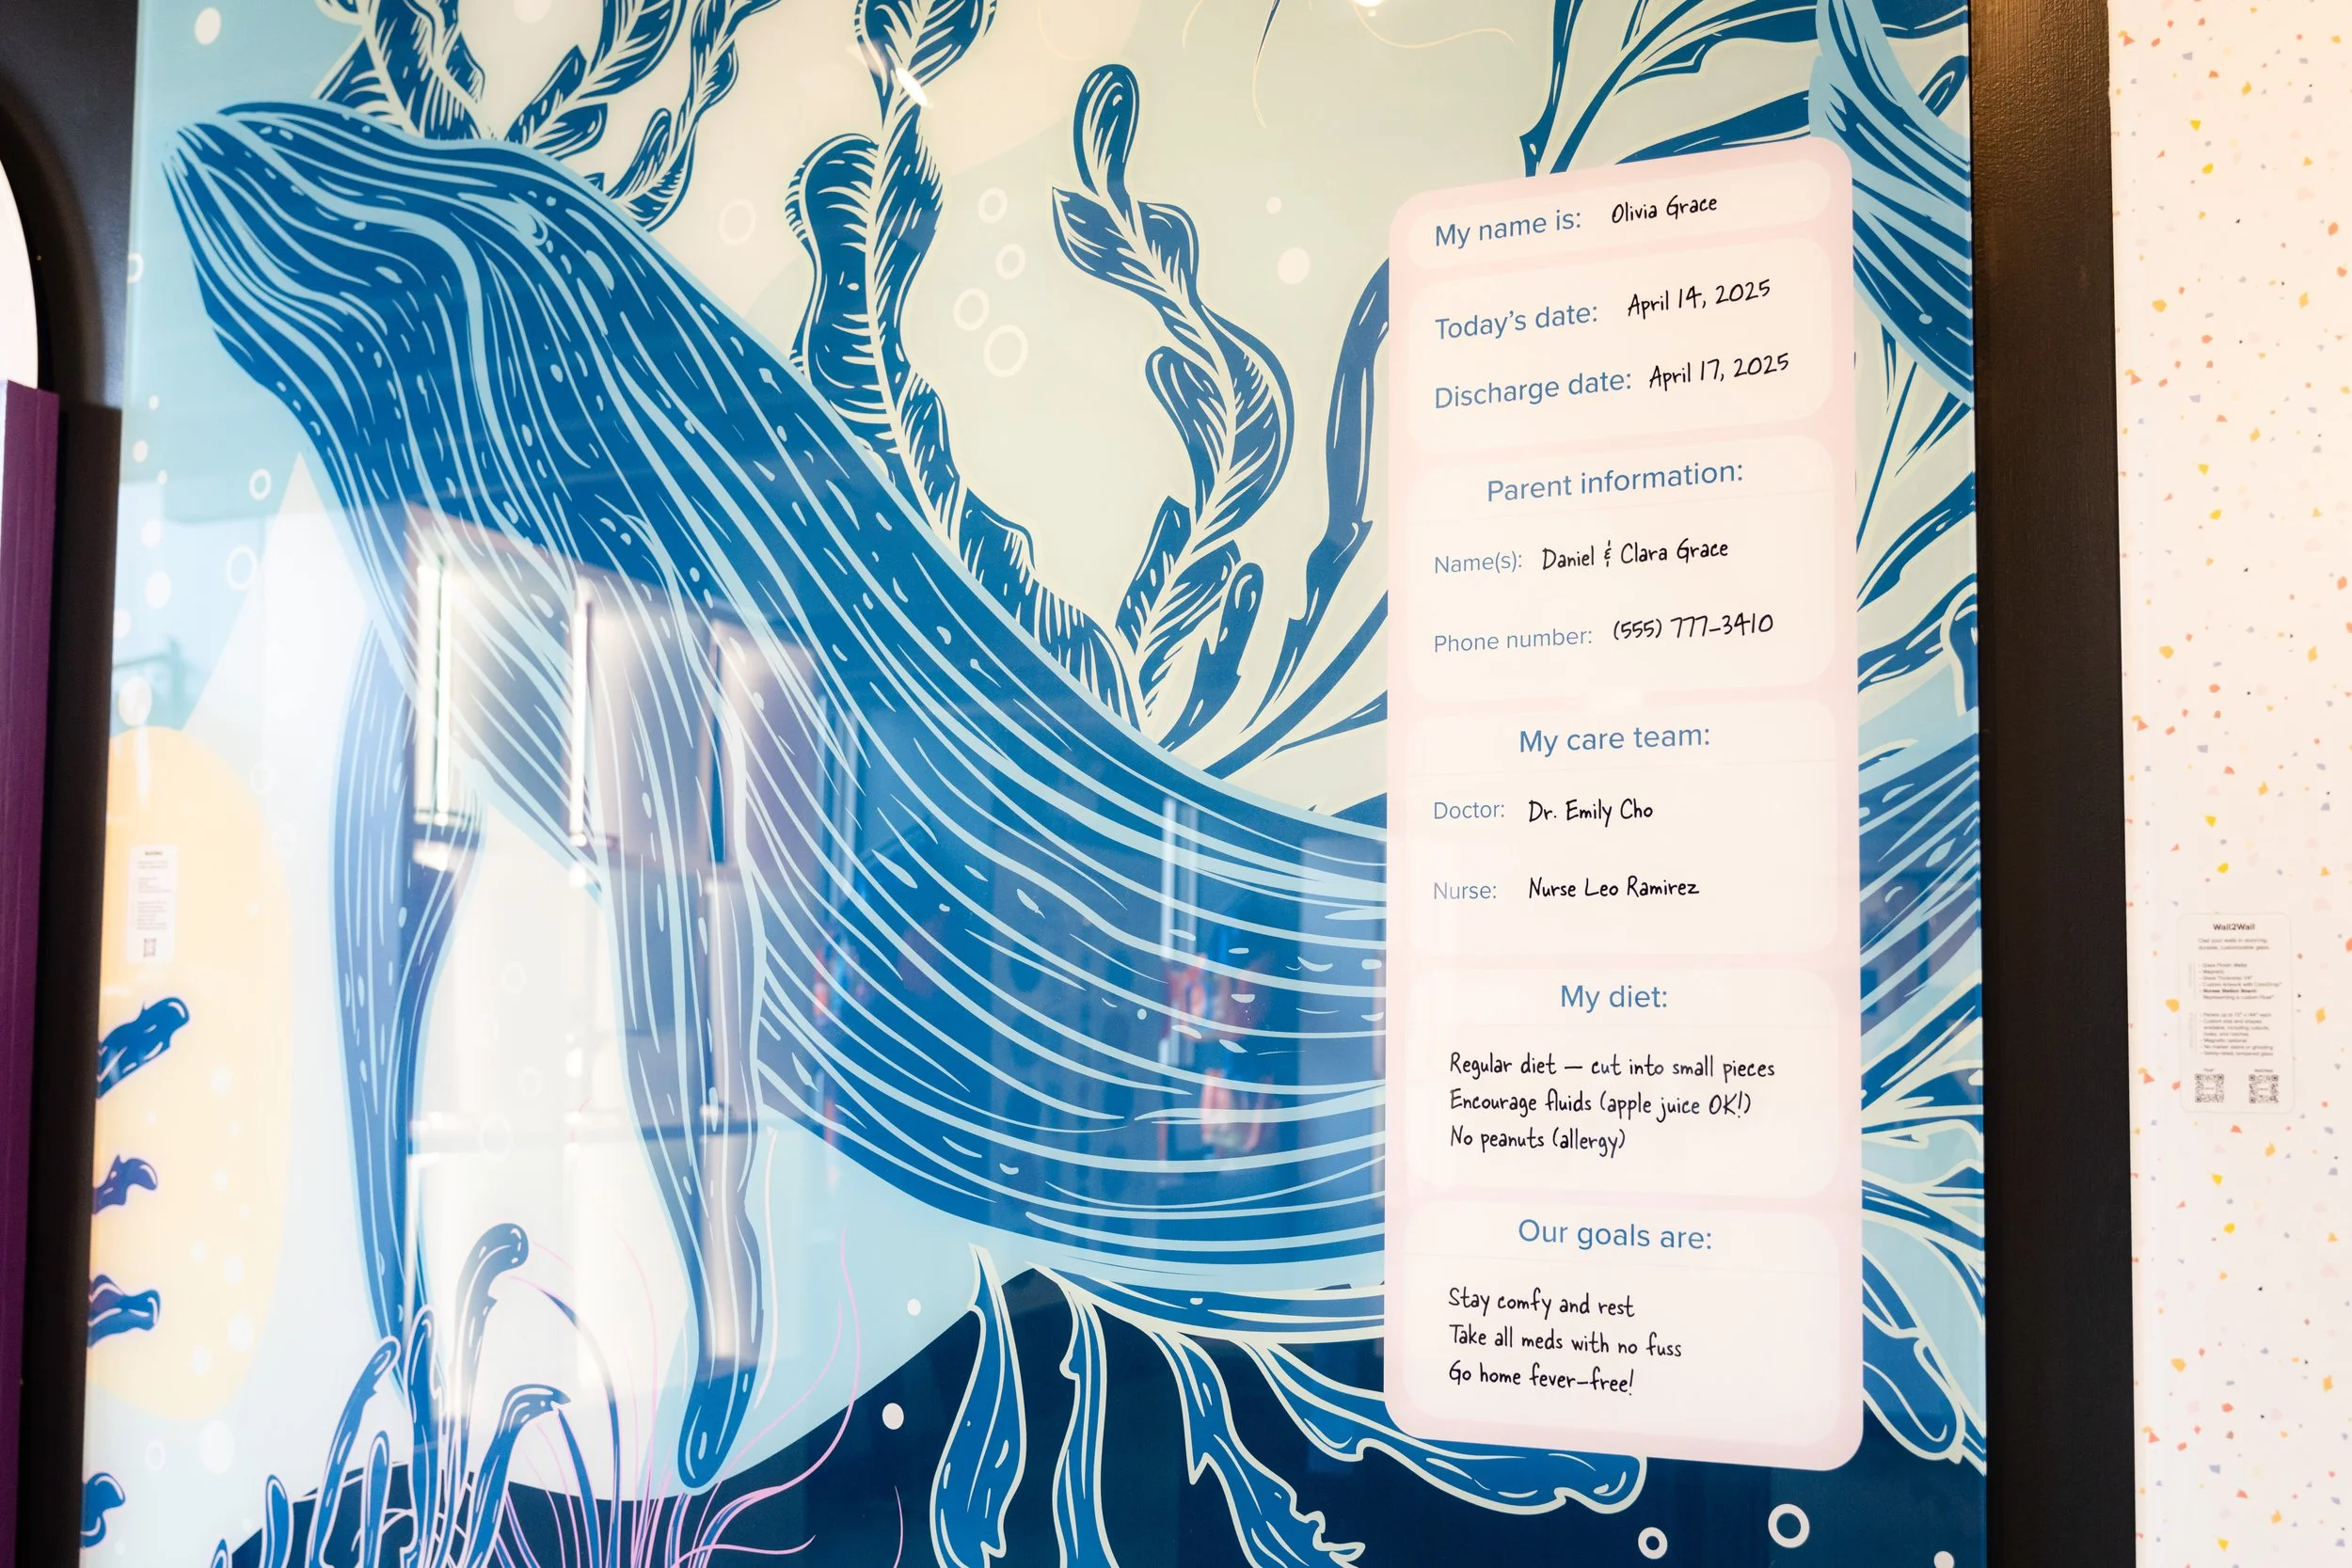 My name is: Olivia Grace
Today's date: April 14, 2025
Discharge date: April 17, 2025
Parent information:
Name(s): Daniel & Clara Grace
Phone number: (555) 777-3410
My care team:
Doctor: Dr. Emily Cho
Nurse: Nurse Leo Ramirez
My diet:
Regular diet — cut into small pieces
Encourage fluids (apple juice OK!)
No peanuts (allergy)
Our goals are:
Stay comfy and rest
Take all meds with no fuss
Go home fever-free!
Wall2Wall